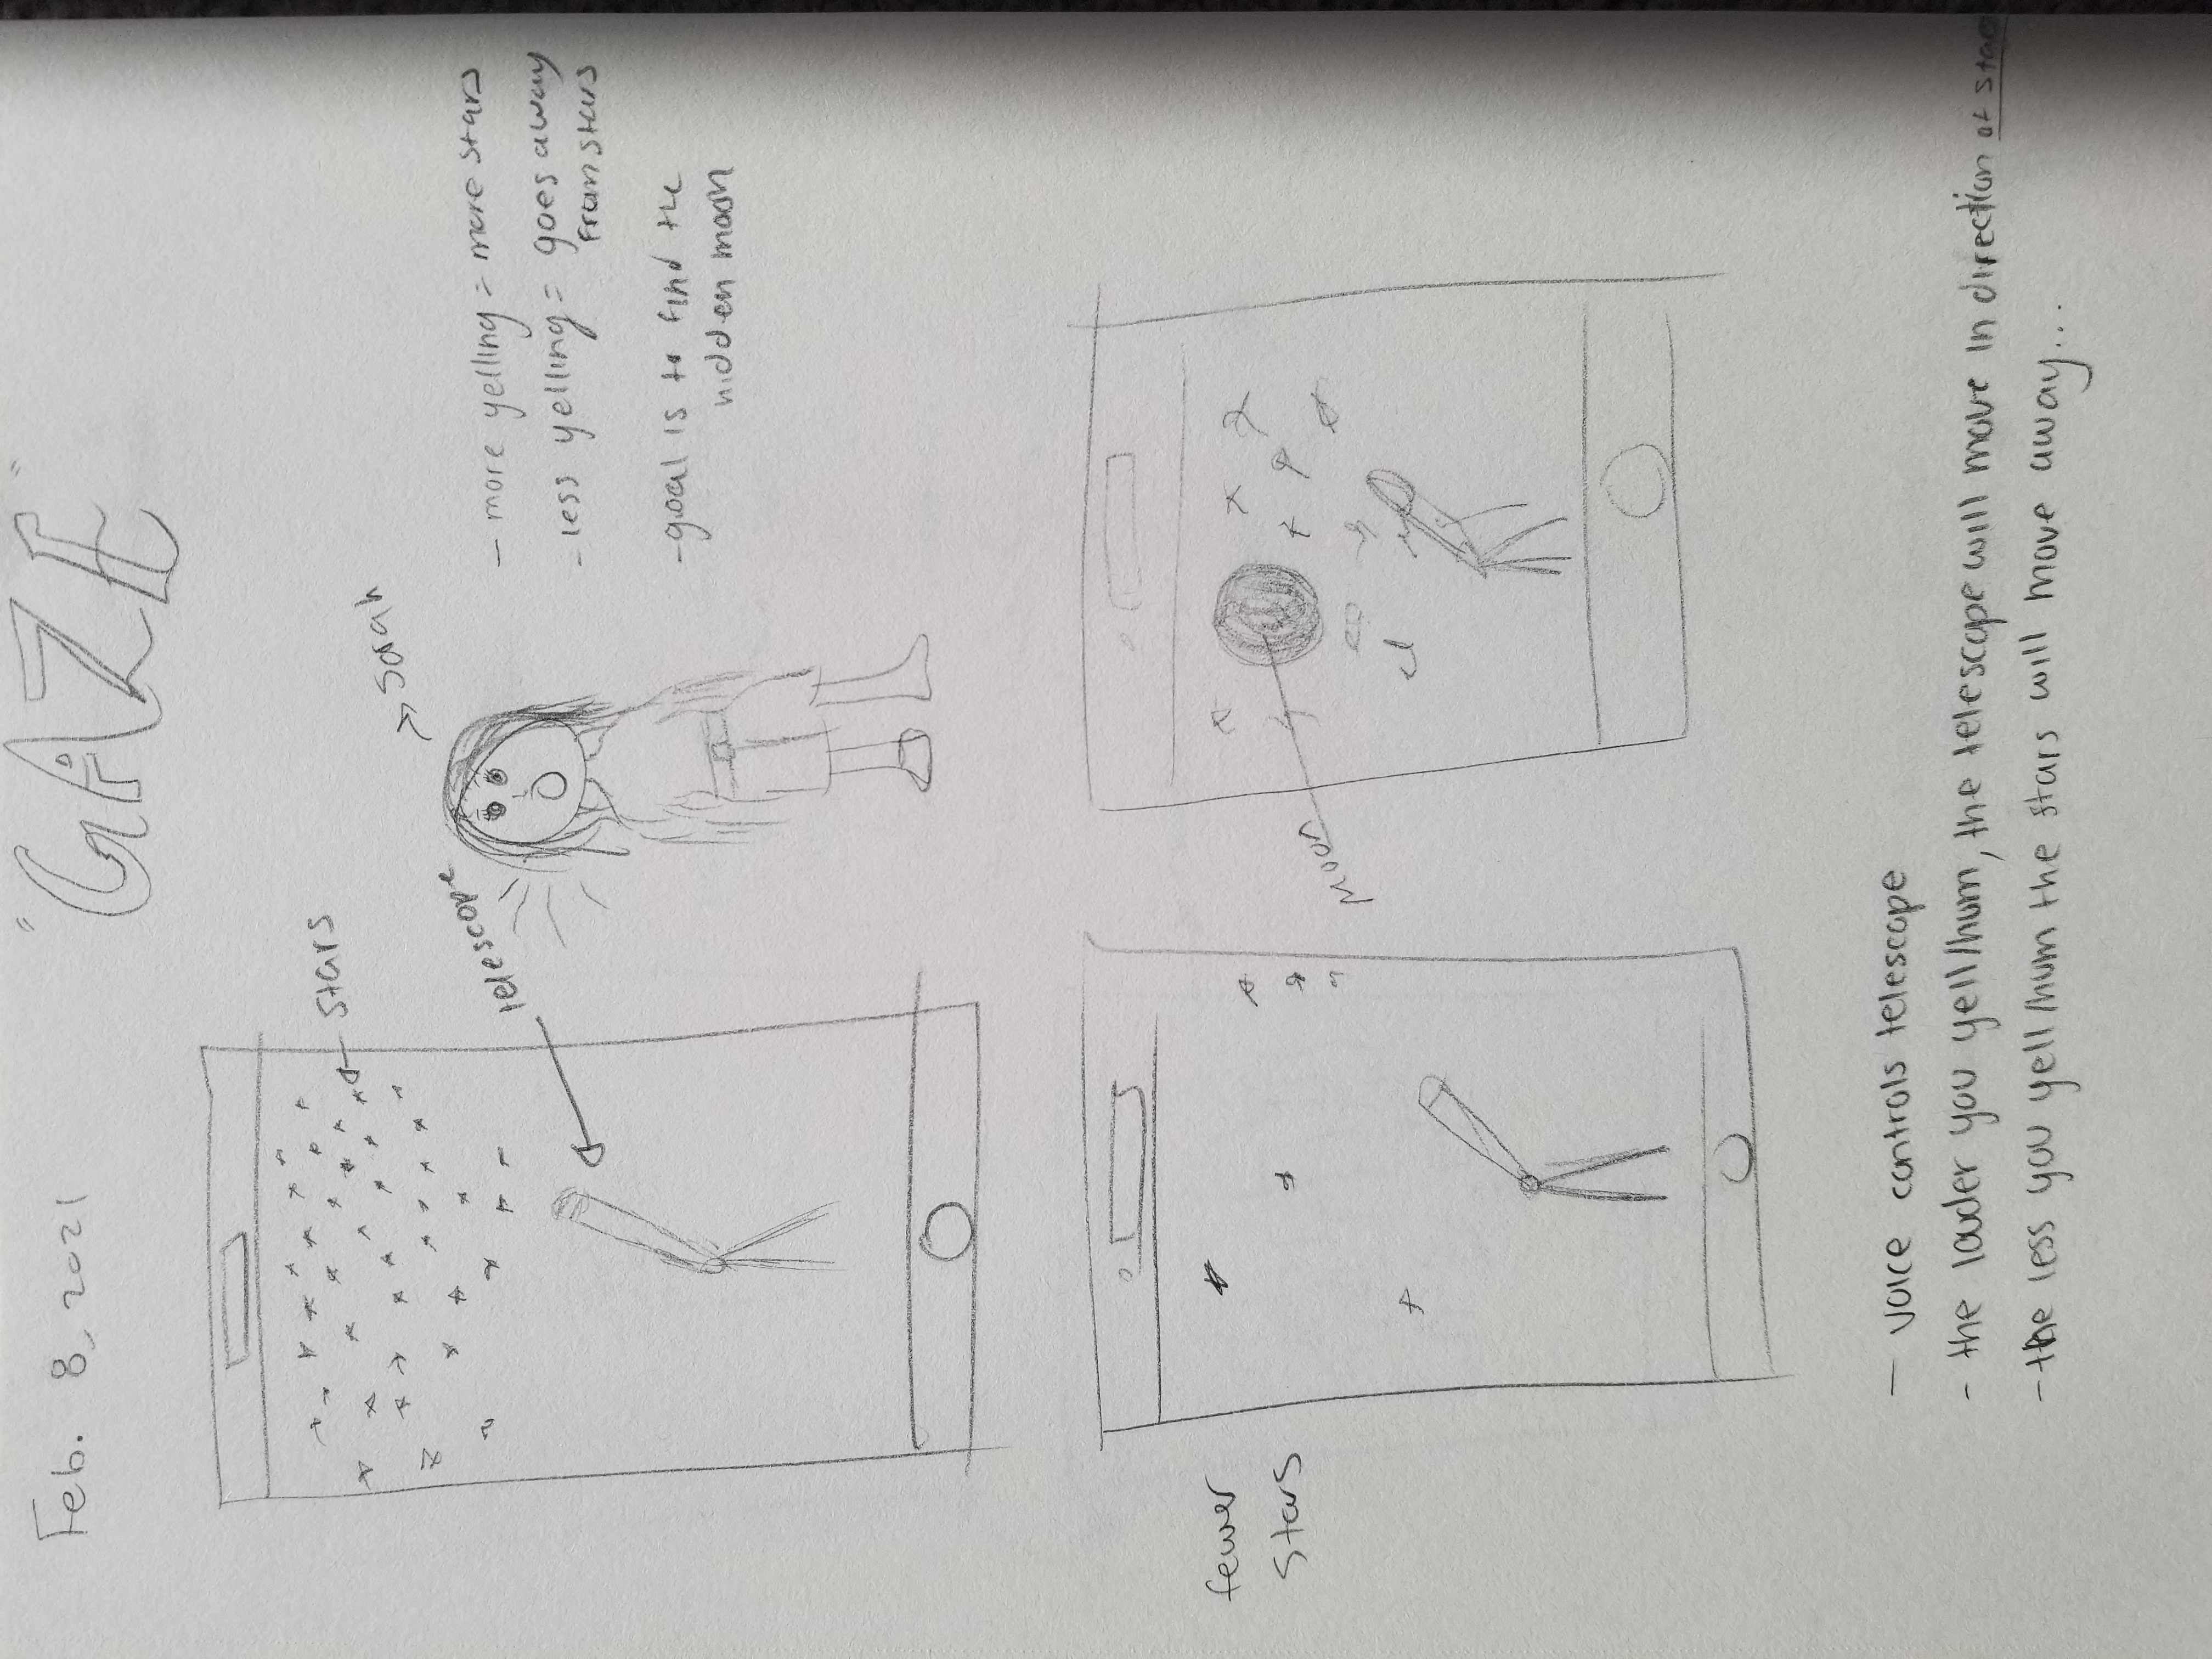 Feb. 8, 2021
"GAZE"
stars
Sarah
telescope
- more yelling = more stars
- less yelling = goes away
from stars
- goal is to find the
hidden moon
fewer
stars
Moon
- voice controls telescope
- the louder you yell/hum, the telescope will move in direction of stars
- the less you yell/hum the stars will move away...